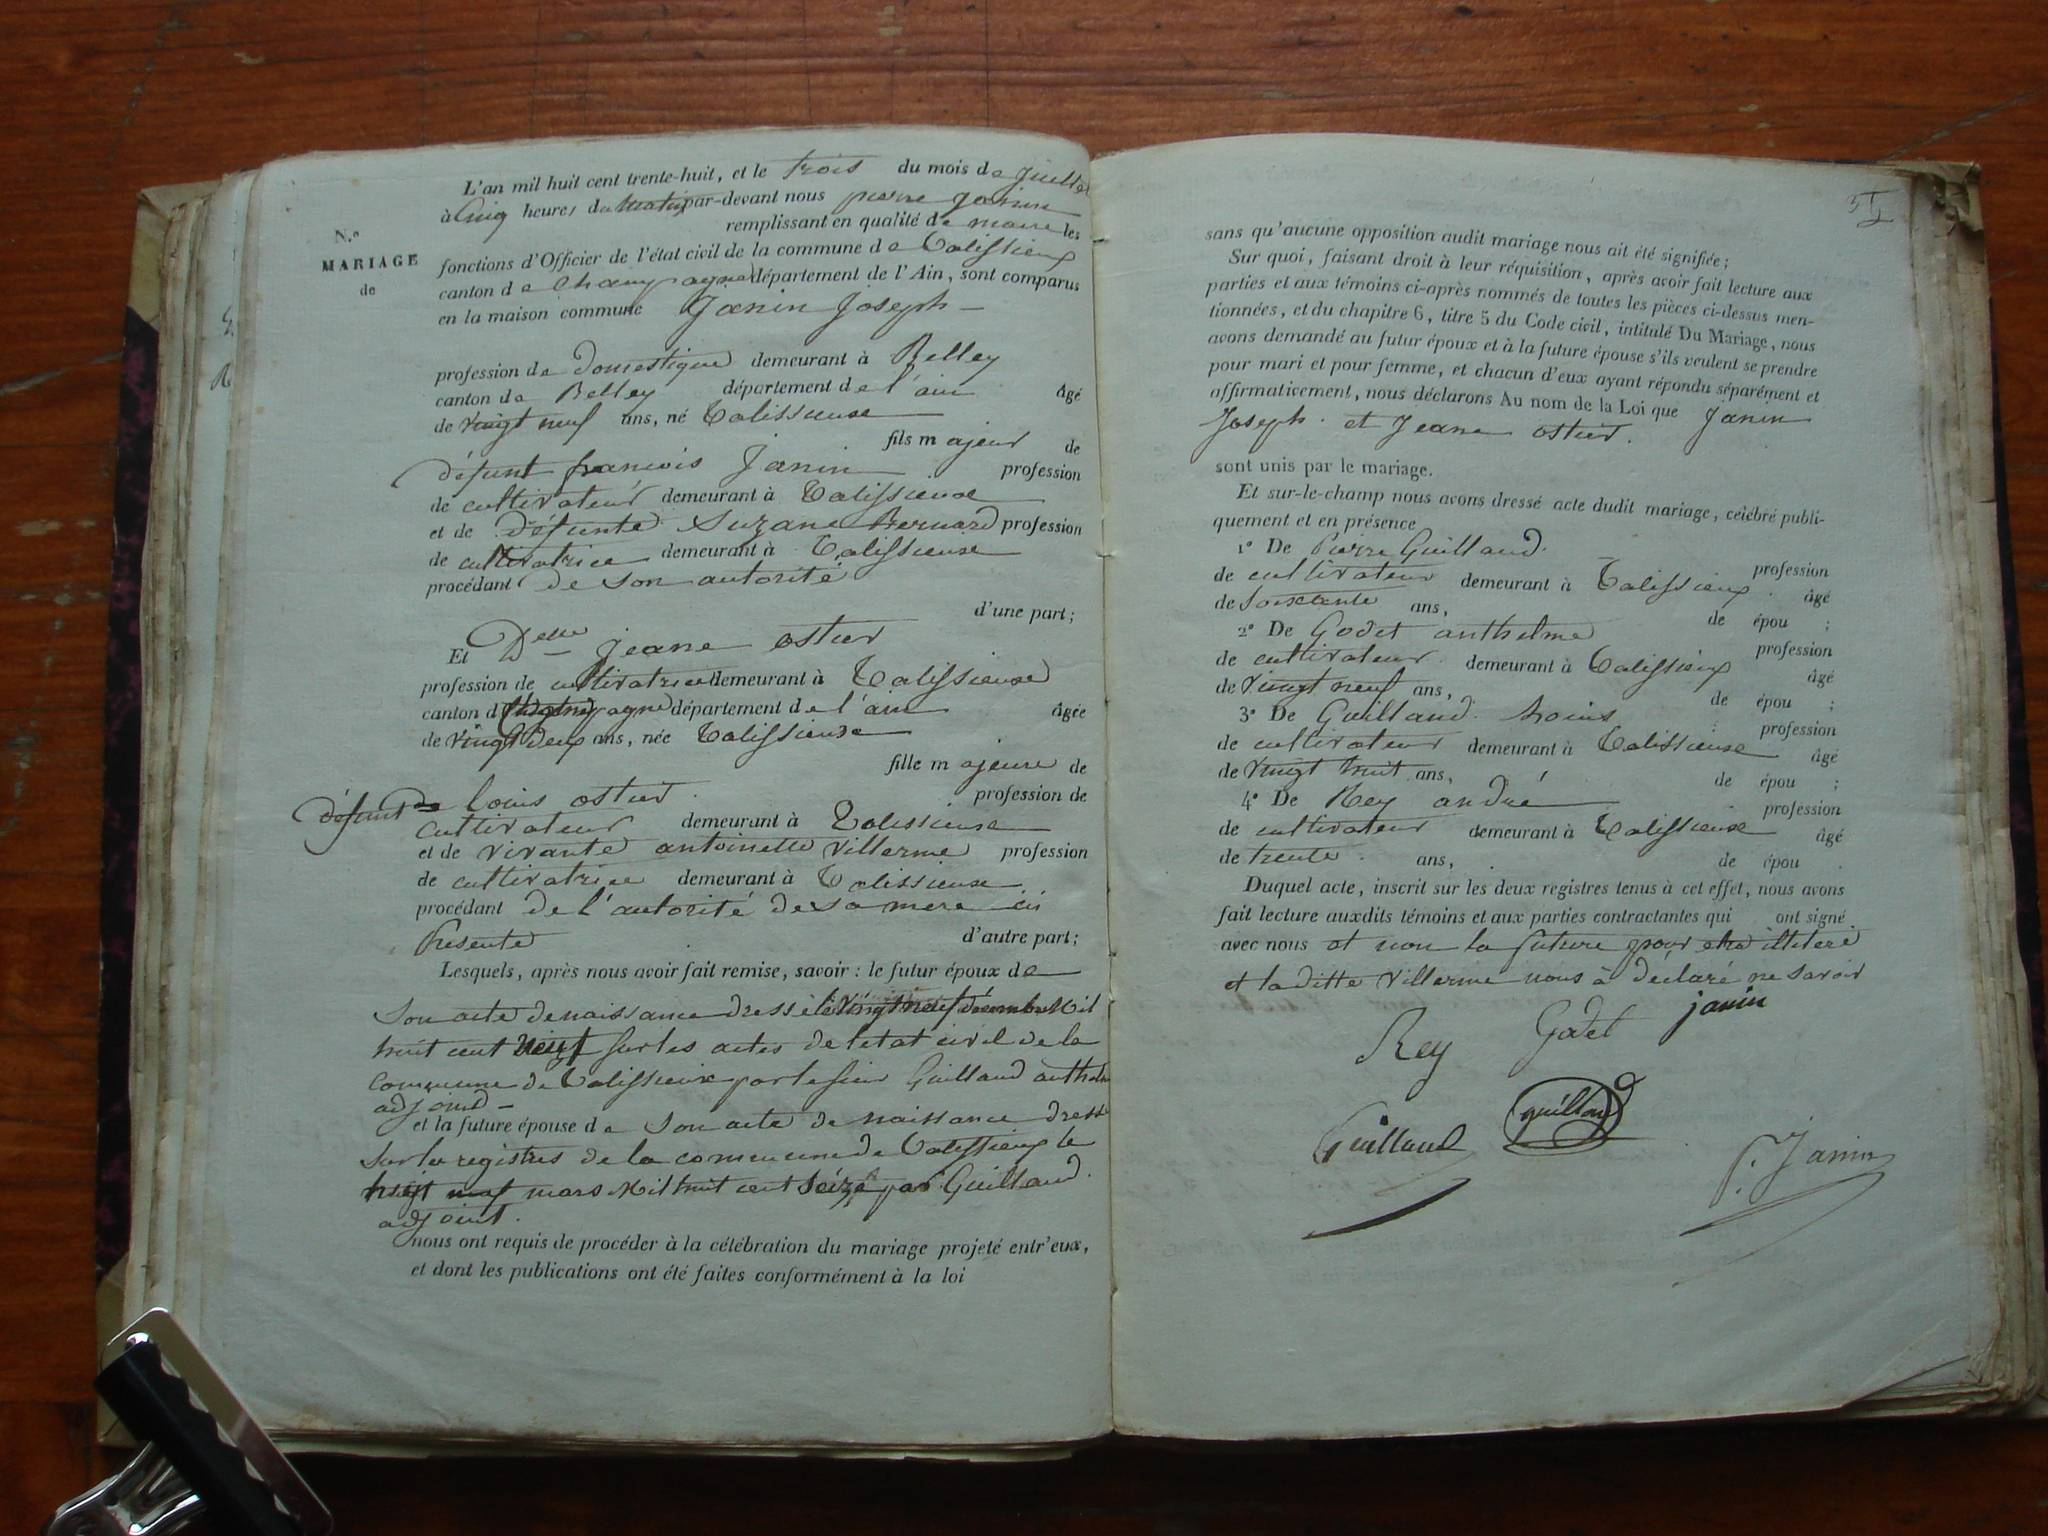 L'an mil huit cent trente-huit, et le trois du mois de juillet
à Cinq heures du matin par-devant nous pierre Janin
remplissant en qualité de maire les
N.°
MARIAGE
de
fonctions d'Officier de l'état civil de la commune de Talissieux
canton de Champagne département de l'Ain, sont comparus
en la maison commune Janin Joseph
profession de Domestique demeurant à Belley
canton de Belley département de l'ain âgé
de vingt neuf ans, né Talissieuse
fils majeur de
défunt francois Janin profession
de cultivateur demeurant à Talissieuse
et de defunte Suzane Bernard profession
de cultivatrice demeurant à Talissieuse
procédant de son autorité
d'une part;
Et Delle Jeane ostier
profession de cultivatrice demeurant à Talissieuse
canton de Champagne département de l'ain âgée
de vingt deux ans, née Talissieuse
fille majeure de
défunt de louis ostier profession de
cultivateur demeurant à Talissieuse
et de vivante antoinette villerme profession
de cultivatrice demeurant à Talissieuse
procédant de l'autorité de sa mere ici
Presente d'autre part;
Lesquels, après nous avoir fait remise, savoir : le futur époux de
Son acte de naissance dressé le vingt neuf décembre Mil
huit cent neuf sur les actes de letat civil de la
commune de Talissieux par le sieur Guilland anthelme
adjoind
et la future épouse de Son acte de naissance dressé
sur les registres de la commune de Talissieux le
mars Mil huit cent seize par Guilland
adjoint.
nous ont requis de procéder à la célébration du mariage projeté entr'eux,
et dont les publications ont été faites conformément à la loi
sans qu'aucune opposition audit mariage nous ait été signifiée;
Sur quoi, faisant droit à leur réquisition, après avoir fait lecture aux
parties et aux témoins ci-après nommés de toutes les pièces ci-dessus men-
tionnées, et du chapitre 6, titre 5 du Code civil, intitulé Du Mariage, nous
avons demandé au futur époux et à la future épouse s'ils veulent se prendre
pour mari et pour femme, et chacun d'eux ayant répondu séparément et
affirmativement, nous déclarons Au nom de la Loi que Janin
Joseph. et Jeane ostier.
sont unis par le mariage.
Et sur-le-champ nous avons dressé acte dudit mariage, célébré publi-
quement et en présence
1° De Pierre Guilland. profession
de cultivateur demeurant à Talissieux. âgé
de soixante ans, de épou ;
2° De Godet anthelme profession
de cultivateur demeurant à Talissieux âgé
de vingt neuf ans, de épou ;
3° De Guilland. louis profession
de cultivateur demeurant à Talissieuse âgé
de vingt huit ans, de épou ;
4° De Rey andré profession
de cultivateur demeurant à Talissieuse âgé
de trente. ans, de épou .
Duquel acte, inscrit sur les deux registres tenus à cet effet, nous avons
fait lecture auxdits témoins et aux parties contractantes qui ont signé
avec nous et non la future pour etre illiteré
et la ditte villerme nous à declaré ne savoir
Rey Godet janin
Guilland guilland
p. Janin